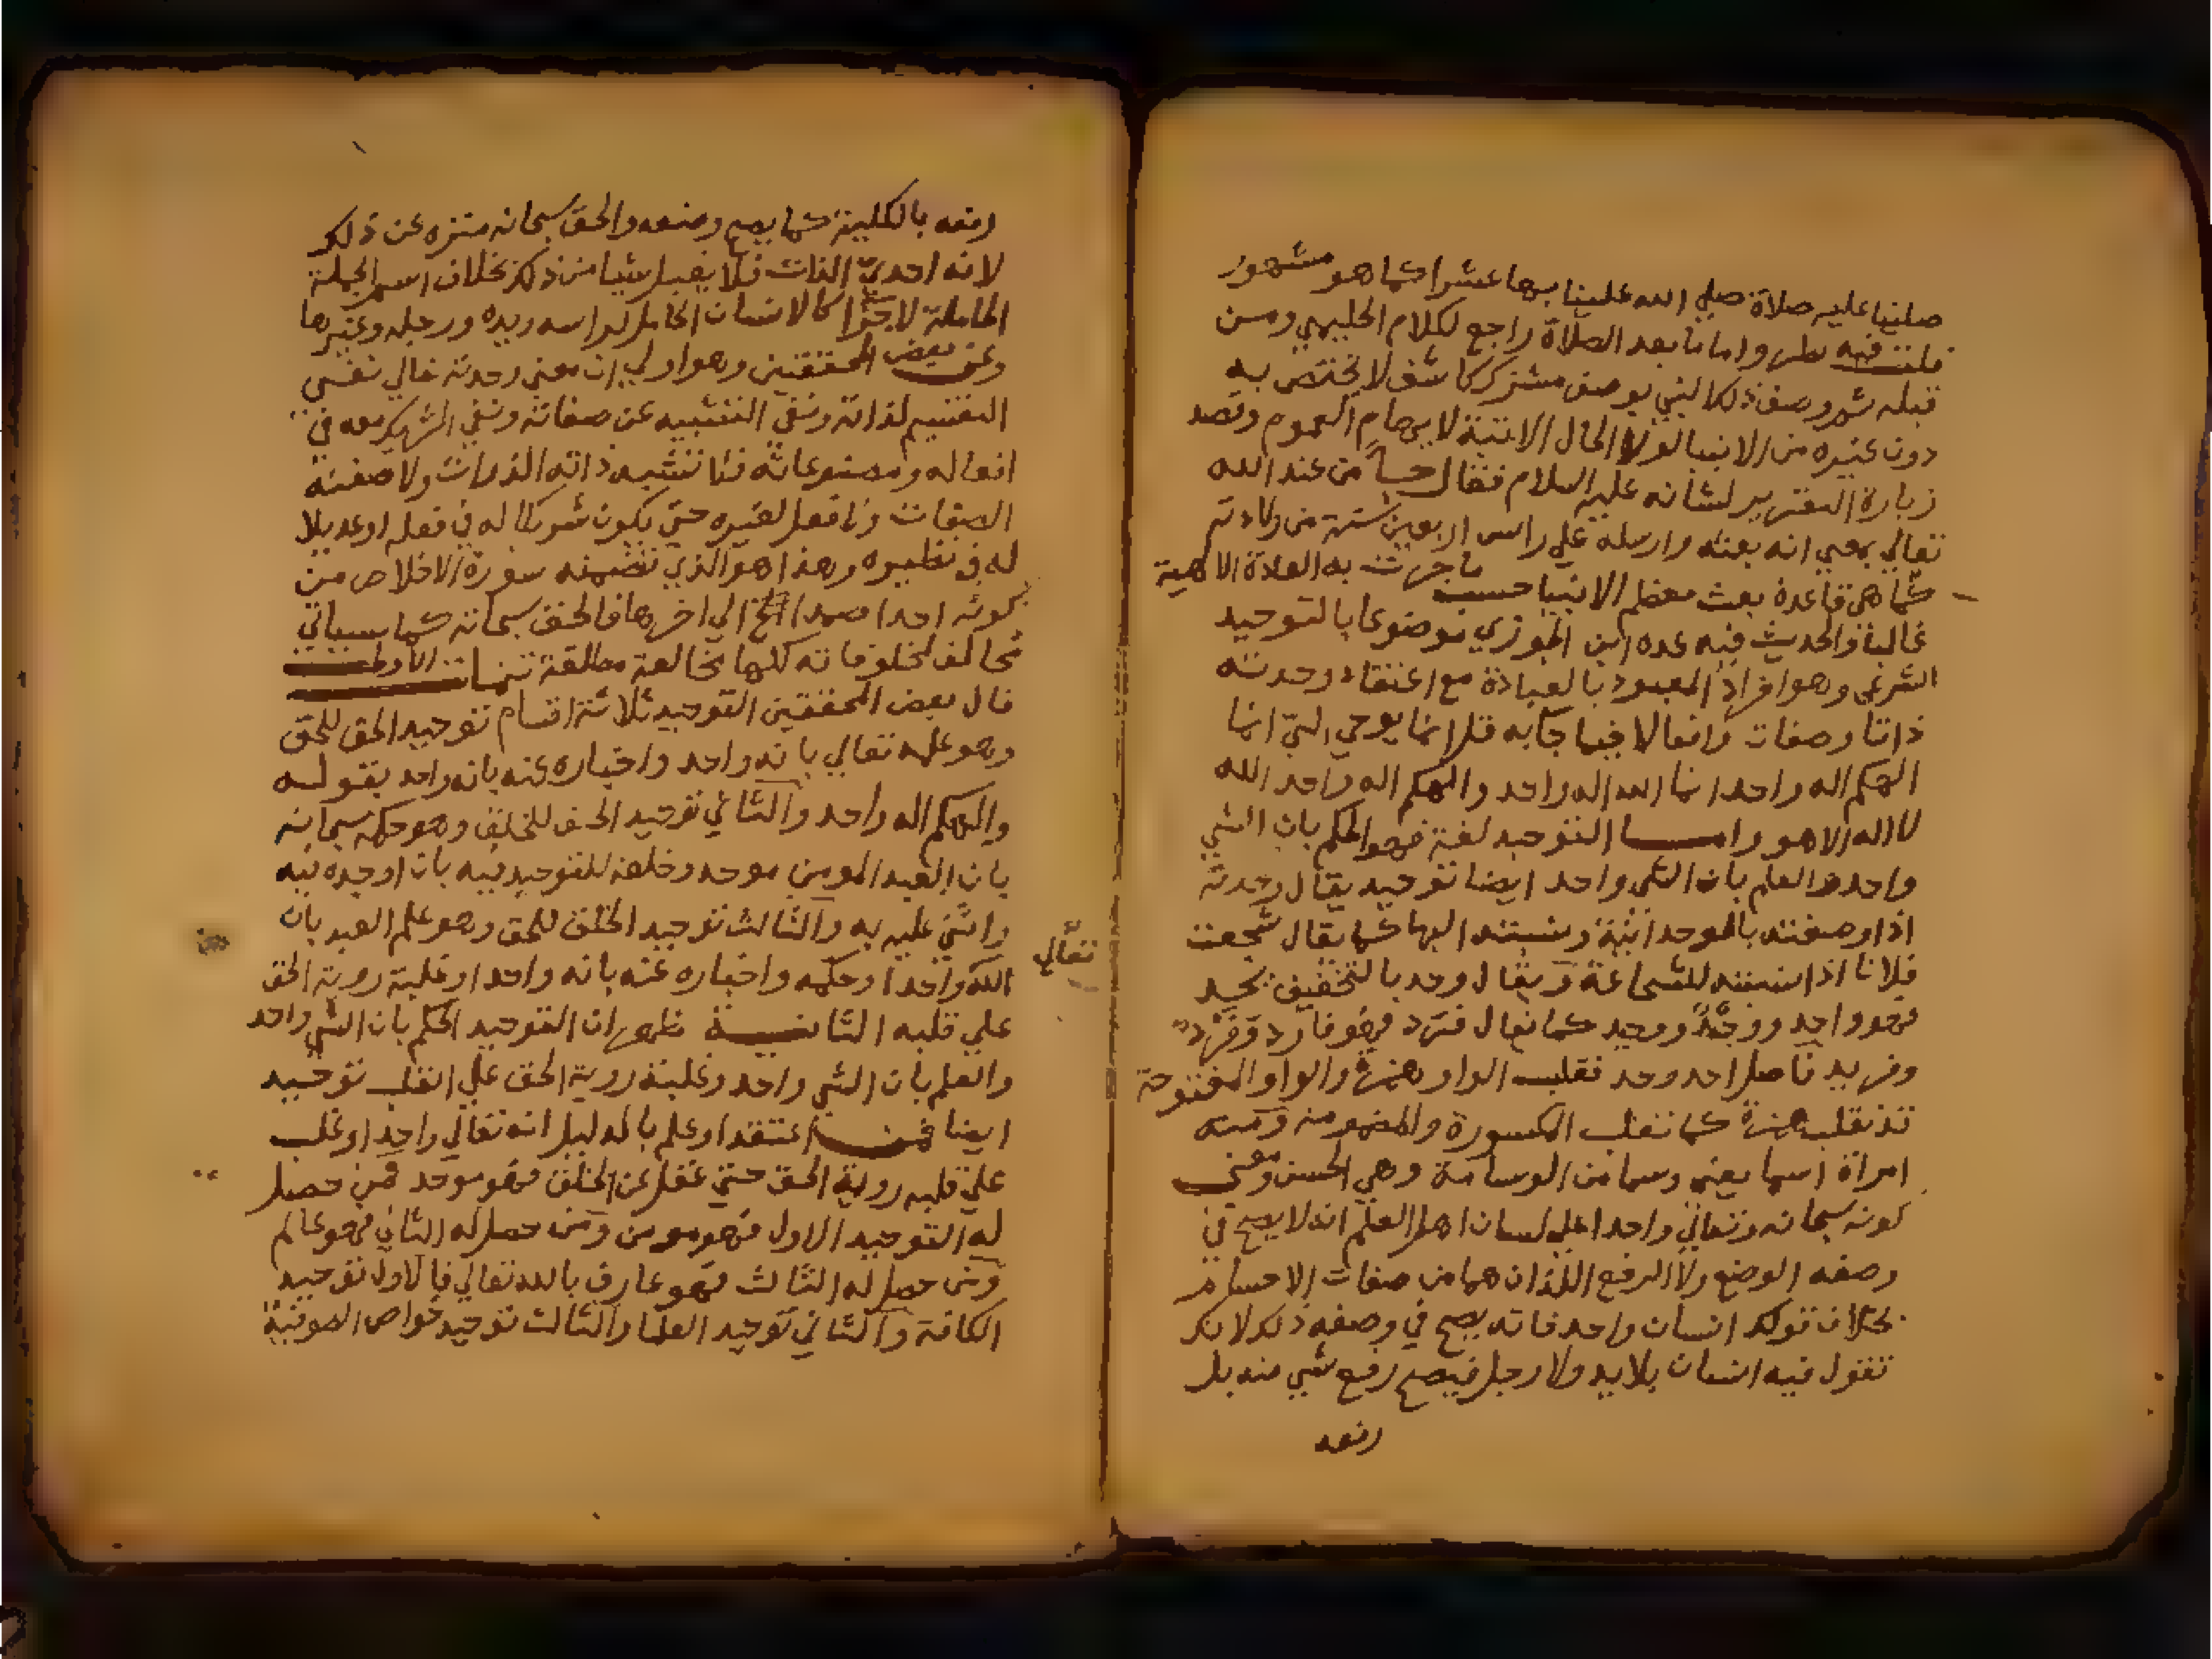 صلينا عليه صلاة صلي الله علينا بها عشرا كما هو مشهور
قلت فيه نظر واما ما بعد الصلاة راجع لكلام الحليمي ومن
قبله ثم وصف ذلك النبي بوصف مشترك كاشف لا يختص به
دون غيره من الانبيا لولا الحال الاتية لايهام العموم وقصد
زيارة التقرير لشانه عليه السلام فقال جآ من عند الله
تعالي بمعني انه بعثه وارسله علي راس اربعين سنة من ولادته
كما هي قاعدة بعث معظم الانبيا حسب ما جرت به العادة الالهية
غالبا والحديث فيه عده ابن الجوزي موضوعا بالتوحيد
الشرعي وهو افراد المعبود بالعبادة مع اعتقاد وحدته
ذاتا وصفات وافعالا فيما جآ به قل انما يوحي الي انما
الهكم اله واحد انما الله اله واحد والهكم اله واحد الله
لا اله الا هو واما التوحيد لغة فهو الحكم بان الشي
واحد والعلم بان الشي واحد ايضا توحيد يقال وحدته
اذا وصفته بالوحدانية ونسبته اليها كما يقال شجعت
فلانا اذا نسبته للشجاعة ويقال وحد بالتخفيف يحد
فهو واحد ووحد ووحيد كما تقال فرد فهو فارد وفرد
وفريد فاصل احد وحد فقلبت الواو همزة والواو المفتوحة
قد تقلب همزة كما تقلب المكسورة والمضمومة ومنه
امراة اسما بمعني وسما من الوسامة وهي الحسن ومعني
كونه سبحانه وتعالي واحدا علي لسان اهل العلم انه لا يصح في
وصفه الوضع ولا الرفع اللذان هما من صفات الاجسام
بخلاف قولك انسان واحد فانه يصح في وصفه ذلك لانك
تقول فيه انسان بلا يد ولا رجل فيصح رفع شي منه بل
رفعه
رفعه بالكلية كما يصح وضعه والحق سبحانه منزه عن ذلك
لانه احدي الذات فلا يقبل شيا من ذلك بخلاف اسم الجملة
الحاملة لاجزا كالانسان الحامل لراسه ويده ورجله وغيرها
وعن بعض المحققين وهو اولي ان معني وحدته تعالي نفي
التقسيم لذاته ونفي التشبيه عن صفاته ونفي الشريك معه في
افعاله ومصنوعاته فلا تشبه ذاته الذوات ولا صفته
الصفات ولا فعل لغيره حتي يكون شريكا له في فعله او عديلا
له في نظيره وهذا هو الذي تضمنه سورة الاخلاص من
كونه احدا صمدا الخ الي اخرها فالحق سبحانه كما سياتي
مخالف لمخلوقاته كلها مخالفة مطلقة تتمات الاولي
قال بعض المحققين التوحيد ثلاثة اقسام توحيد الحق للحق
وهو علمه تعالي بانه واحد واخباره عنه بانه واحد بقوله
والهكم اله واحد والثاني توحيد الحق للخلق وهو حكمه سبحانه
بان العبد المومن موحد وخلقه للتوحيد فيه بان اوجده فيه
واثني عليه به والثالث توحيد الخلق للحق وهو علم العبد بان
تعالي
الله واحدا وحكمه واخباره عنه بانه واحد او غلبة روية الحق
علي قلبه الثانية ظهر ان التوحيد الحكم بان الشي واحد
والعلم بان الشي واحد وغلبة روية الحق علي القلب توحيد
ايضا فمن اعتقد او علم بالدليل انه تعالي واحد او غلب
علي قلبه روية الحق حتي غفل عن الخلق فهو موحد فمن حصل
له التوحيد الاول فهو مومن ومن حصل له الثاني فهو عالم
ومن حصل له الثالث فهو عارف بالله تعالي فالاول توحيد
الكافة والثاني توحيد العلما والثالث توحيد خواص الصوفية